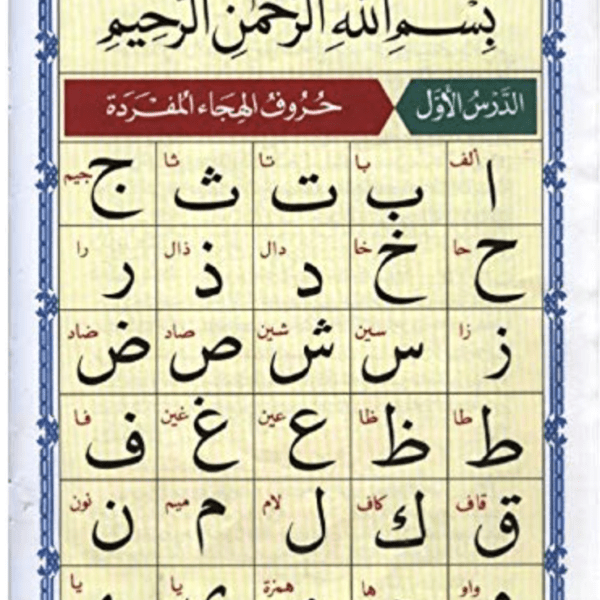 بِسْمِ اللهِ الرَّحْمٰنِ الرَّحِيمِ
الدَّرْسُ الأَوَّل حُرُوفُ الهِجَاءِ المُفْرَدَة
ا ألف ب با ت تا ث ثا ج جيم
ح حا خ خا د دال ذ ذال ر را
ز زا س سين ش شين ص صاد ض ضاد
ط طا ظ ظا ع عين غ غين ف فا
ق قاف ك كاف ل لام م ميم ن نون
واو ها همزة يا يا